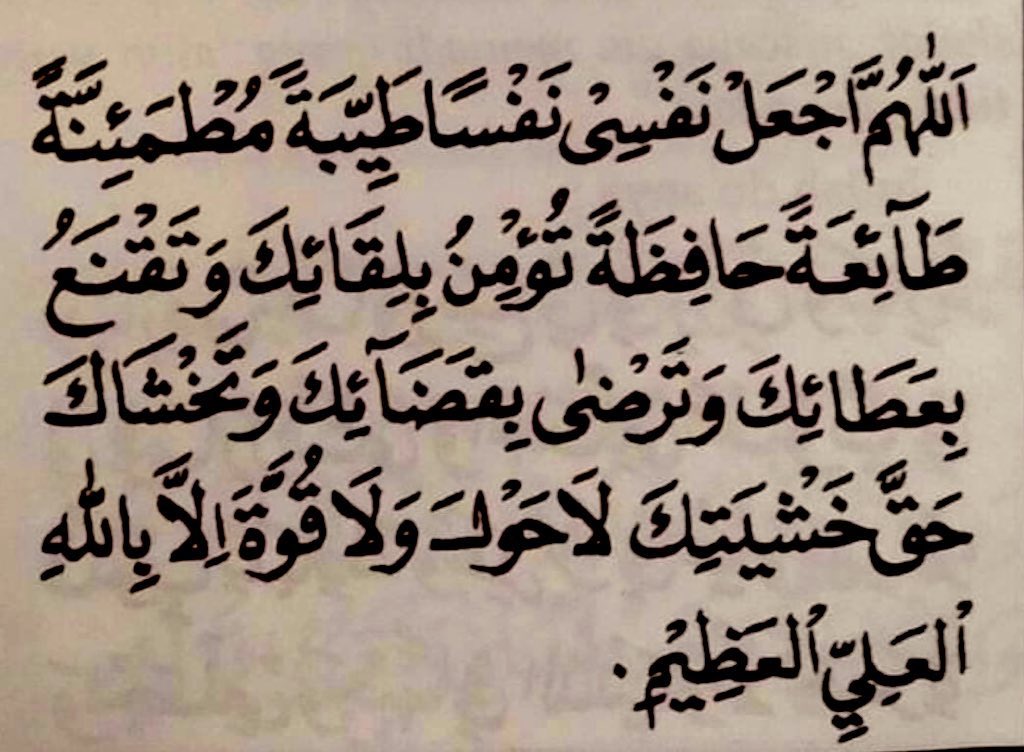 اَللّٰهُمَّ اجْعَلْ نَفْسِىْ نَفْسًا طَيِّبَةً مُطْمَئِنَّةً
طَآئِعَةً حَافِظَةً تُؤْمِنُ بِلِقَائِكَ وَتَقْنَعُ
بِعَطَائِكَ وَتَرْضٰى بِقَضَآئِكَ وَتَخْشَاكَ
حَقَّ خَشْيَتِكَ لَا حَوْلَ وَلَا قُوَّةَ اِلَّا بِاللّٰهِ
الْعَلِيِّ الْعَظِيْمِ.